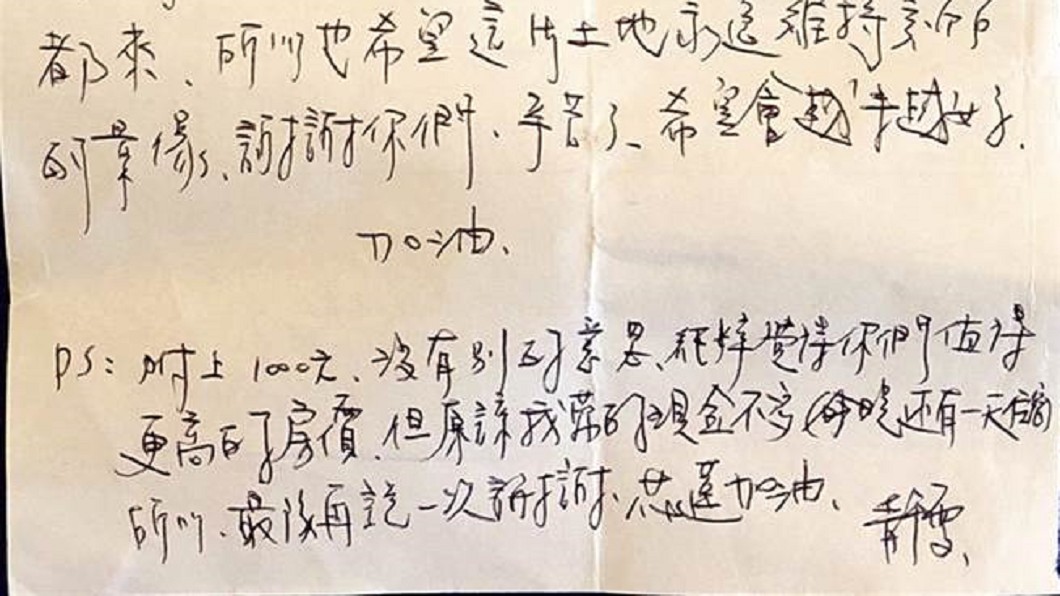 都來、所以也希望這片土地永遠維持系節
的景像、謝謝你們、辛苦了、希望會越來越好.
加油、
PS: 附上1000元、沒有別的意思、純粹覺得你們值得
更高的房價、但原諒我帶的現金不多(今晚还有一天住宿)
所以、最後再說一次謝謝、花蓮加油、 靜雯、